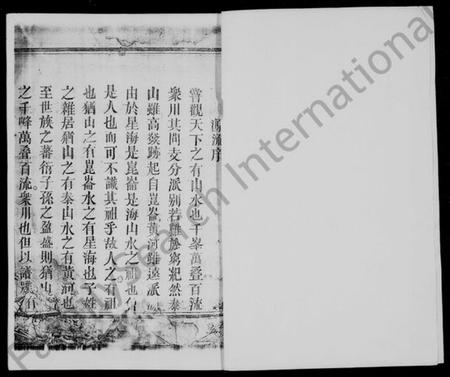 溯流序
嘗觀天下之有山水也千峯萬壑百流
衆川其間支分派別若難於窮紀然泰
山雖高發跡起自崑崙黃河雖遠派
由於星海是崑崙是海山水之祖也
是人也而可不識其祖乎故人之有祖
也猶山之有崑崙水之有星海也子姓
之雜居猶山之有泰山水之有黃河也
至世族之蕃衍子孫之盈盛則猶山
之千峰萬壑百流衆川也但以譜
FamilySearch International